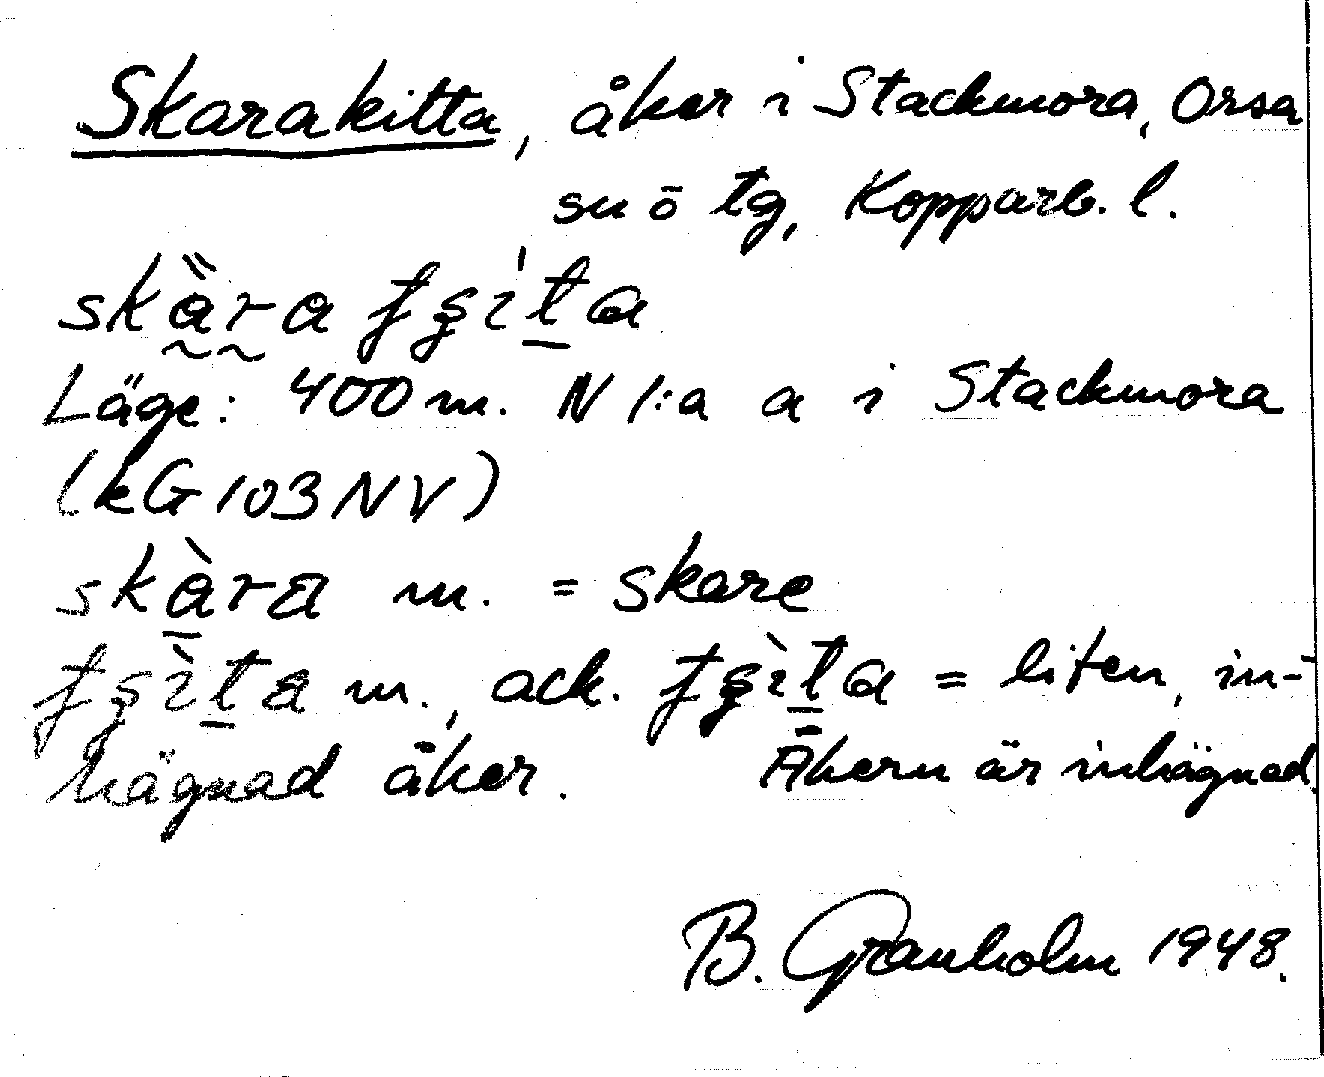 Skarakitta, åker i Stackmora, Orsa
sn ö tg, Kopparb. l.
Läge: 400 m. N 1:a a i Stackmora
(kG 103 NV)
skàra m. = skare
m., ack. = liten, in-
hägnad åker. Åkern är inhägnad.
B. Granholm 1948.